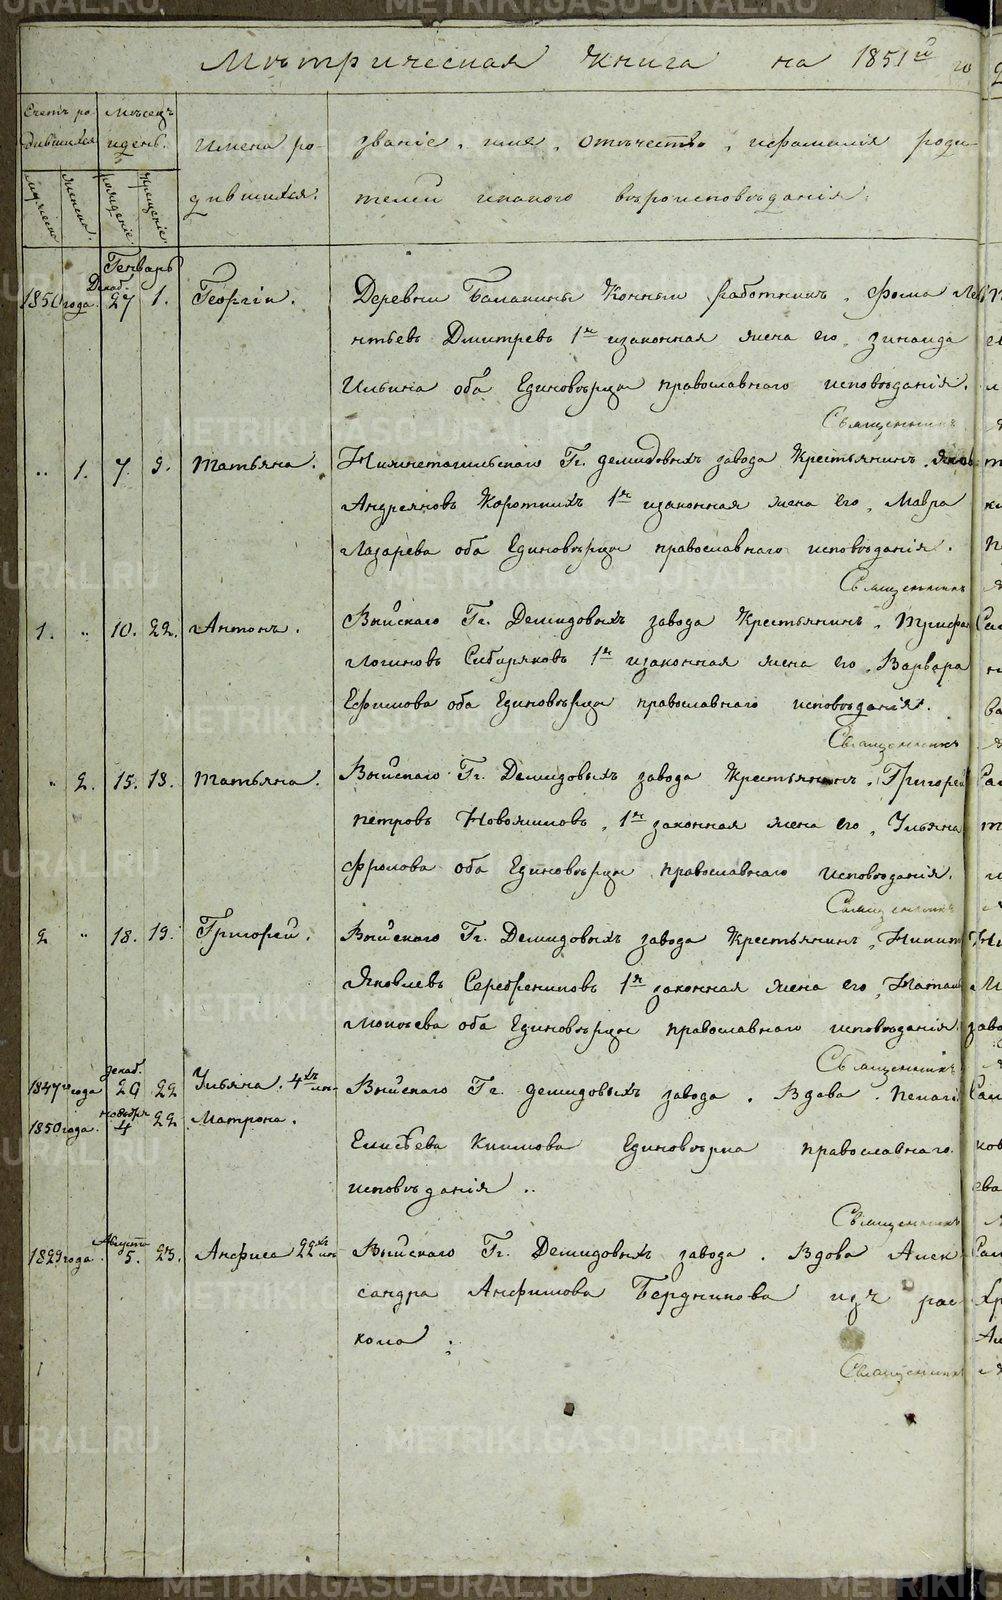 Метрическая книга на 1851й го
Счетъ ро-
дившихся
Месецъ
и день.
Имена ро-
дившихся.
званіе, имя, отчество, и фамилія роди-
телей и какого вѣроисповѣданія.
мужеска
женска.
рожденіе
крещеніе
Генварь
1850 года. Декаб. 27 1. Георгій. Деревни Балакины Конный работникъ, Фома Ле
нтьевъ Дмитревъ 1й и законная жена его, Зинаида
Ильина оба Единовѣрцы православнаго исповѣданія.
Священникъ
„ 1. 7. 9. Татьяна. Нижнетагильскаго Гг. Демидовыхъ завода Крестьянинъ, Яковъ
Андреяновъ Короткихъ 1й и законная жена его, Мавра
Лазарева оба Единовѣрцы православнаго исповѣданія.
Священникъ
1. „ 10. 22. Антонъ. Выйскаго Гг. Демидовыхъ завода Крестьянинъ, Трифан
Логиновъ Сибиряковъ 1й и законная жена его, Варвара
Ефимова оба Единовѣрцы православнаго исповѣданія.
Священникъ
„ 2. 15. 18. Татьяна. Выйскаго Гг. Демидовыхъ завода Крестьянинъ, Григорей
Петровъ Новожиловъ, 1й законная жена его, Ульяна
Фролова оба Единовѣрцы православнаго исповѣданія.
Священникъ
2 „ 18. 19. Григорей. Выйскаго Гг. Демидовыхъ завода Крестьянинъ, Никит
Яковлевъ Серебрениковъ 1й законная жена его, Натал
Мокѣева оба Единовѣрцы православнаго исповѣданія.
Священникъ
1847го года декаб. 29 22 Ульяна. 4хъ лѣт Выйскаго Гг. Демидовыхъ завода. Вдова. Пелагѣ
1850 года. ноября 4 22 Матрона.
Елисѣева Климова Единовѣрка православнаго
исповѣданія „
Священникъ
1829 года. Августа 5. 23. Анфиса 22хъ лѣт Выйскаго Гг. Демидовыхъ завода. Вдова Алек
сандра Анфимова Бердникова изъ рас
кола.
Священникъ
METRIKI.GASO-URAL.RU